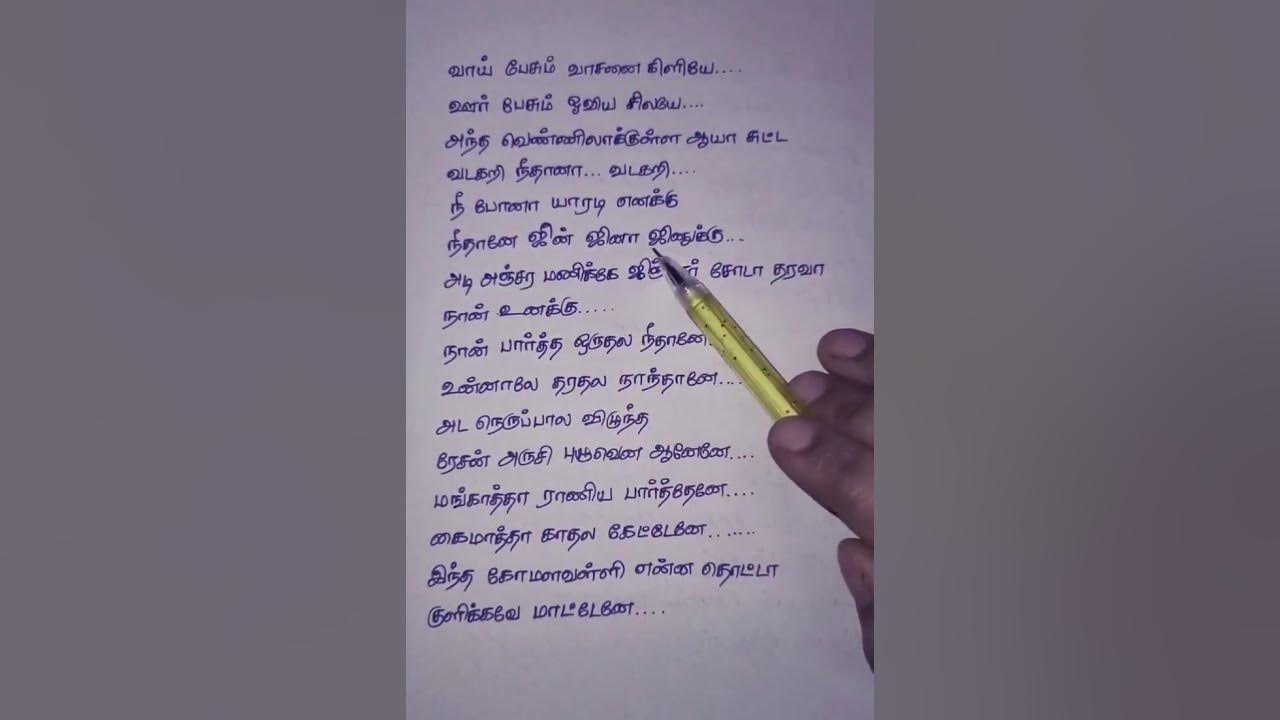 வாய் பேசும் வாசனை கிளியே....
ஊர் பேசும் ஓவிய சிலயே....
அந்த வெண்ணிலாக்குள்ள ஆயா சுட்ட
வடகறி நீதானா... வடகறி....
நீ போனா யாரடி எனக்கு
நீதானே ஜின் ஜினா ஜினுக்கு...
அடி அஞ்சர மணிக்கே சோடா தரவா
நான் உனக்கு.....
நான் பார்த்த ஒருதல நீதானே..
உன்னாலே தரதல நாந்தானே....
அட நெருப்பால விழுந்த
ரேசன் அருசி புழுவென ஆனேனே....
மங்காத்தா ராணிய பார்த்தேனே....
கைமாத்தா காதல கேட்டேனே.......
இந்த கோமளவள்ளி என்ன தொட்டா
குளிக்கவே மாட்டேனே....